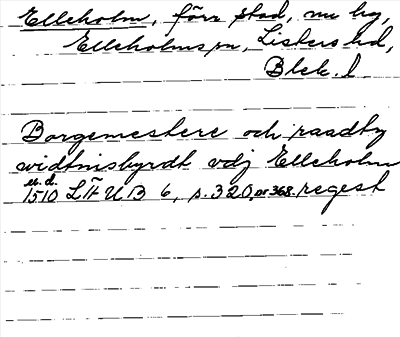 Elleholm, förr stad, nu by,
Elleholms sn, Listers hd,
Blek. l
Borgemestere och raadtz
widtnisbyrdt vdj Elleholm
u. d.
1510 LÄUB 6, s. 320, nr 368. regest